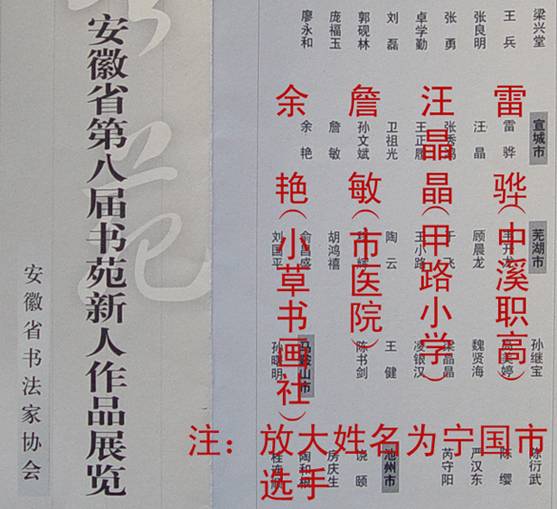 安徽省第八届书苑新人作品展览
安徽省书法家协会
梁兴堂
王兵
张良明
张勇
卓学勤
刘磊
郭砚林
庞福玉
廖永和
宣城市
雷骅
汪晶
卫祖光
孙文斌
詹敏
余艳
芜湖市
顾晨龙
陶云
胡鸿禧
俞昌盛
刘国平
孙继宝
魏贤海
凌银汉
王健
陈书剑
马鞍山市
陈衍武
陈缨
严汉东
芮守阳
池州市
饶颐
房庆生
雷骅（中溪职高）
汪晶晶（甲路小学）
詹敏（市医院）
余艳（小草书画社）
注：放大姓名为宁国市
选手